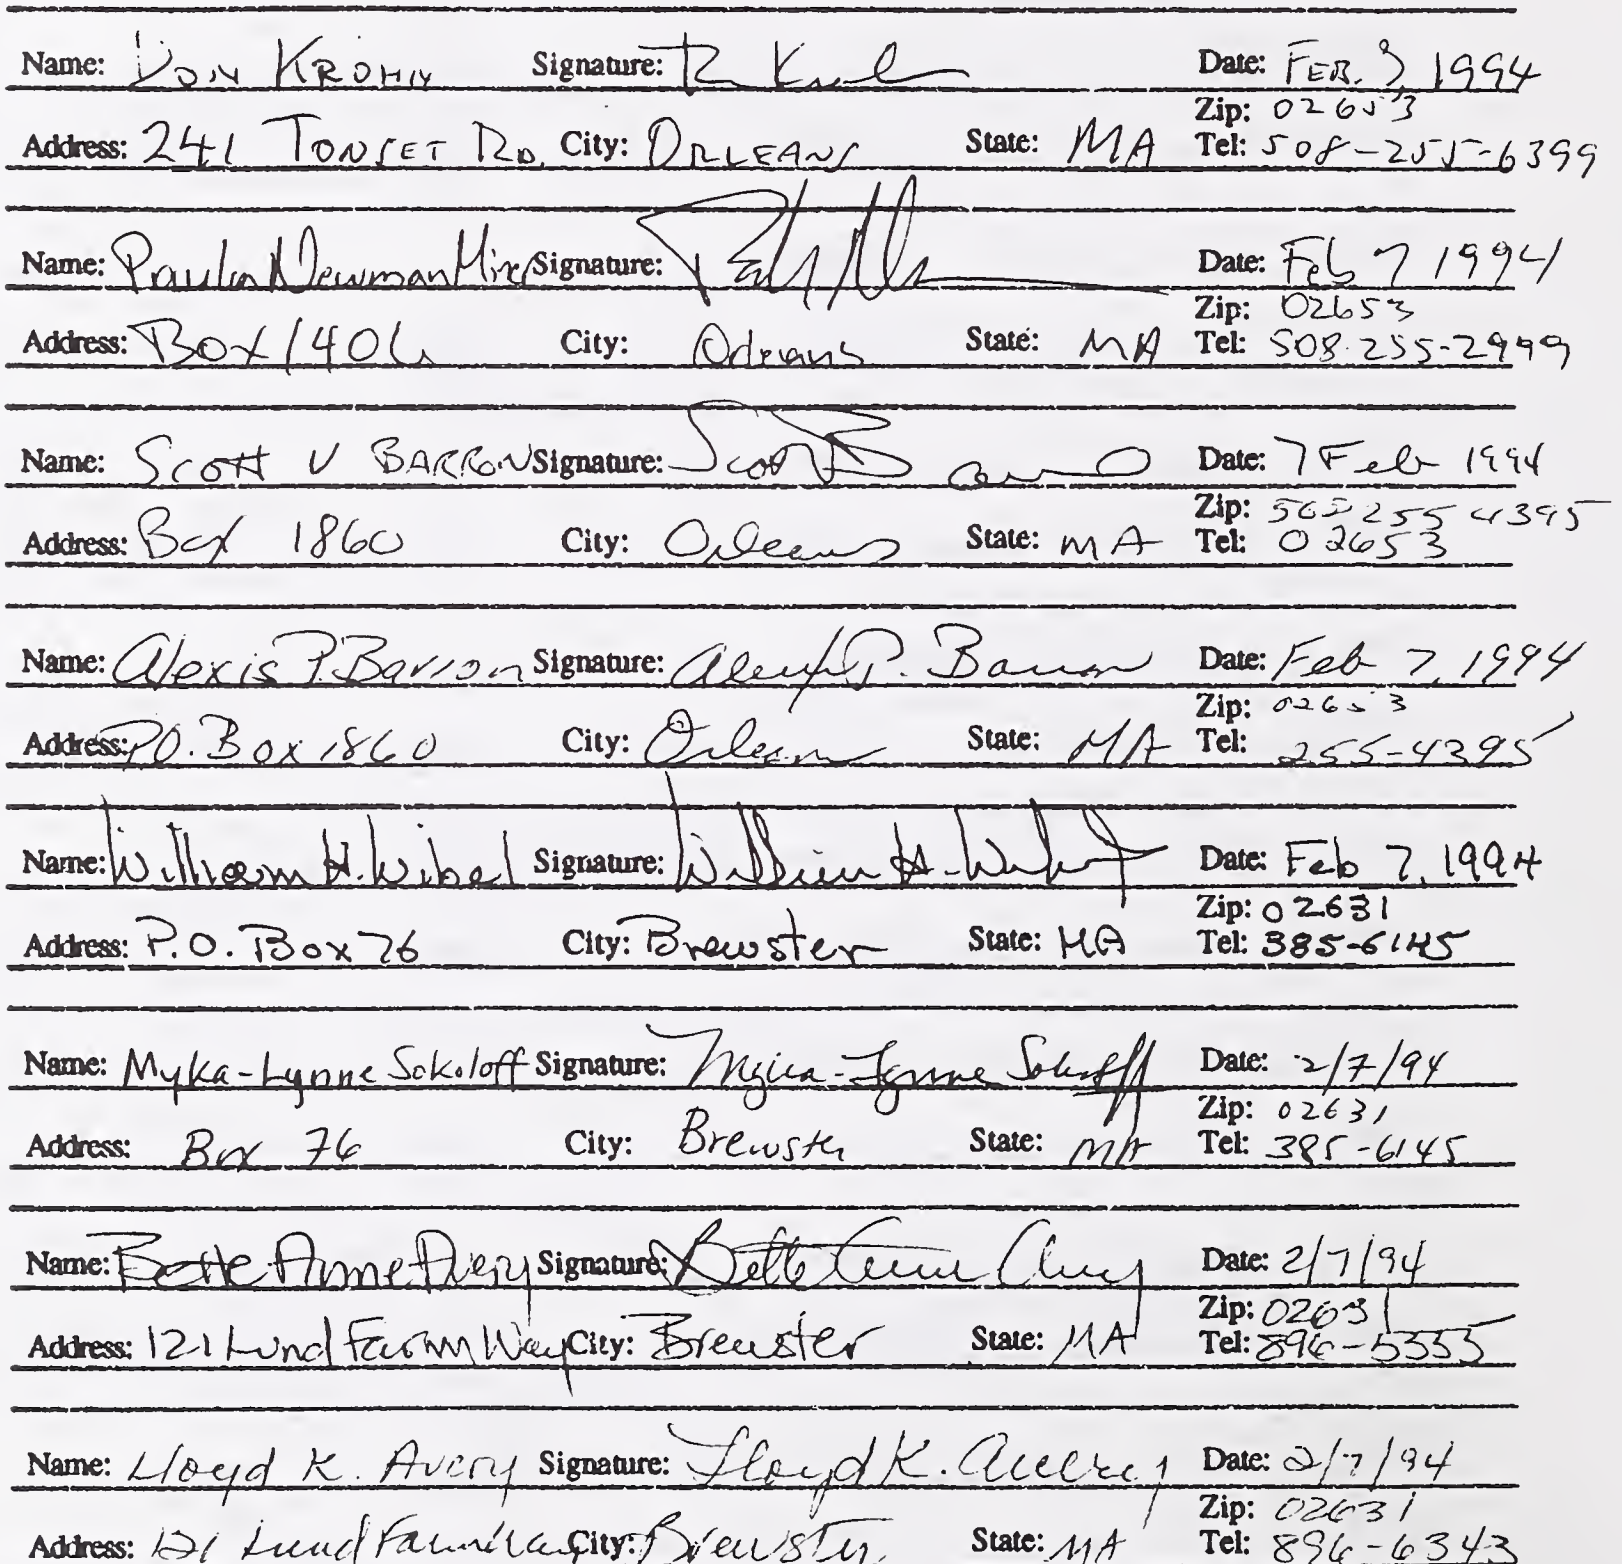 Name: DON KROHN Signature: Date: FEB. 3, 1994
Zip: 02653
Address: 241 TONSET RD. City: ORLEANS State: MA Tel: 508-255-6399
Name: Paula Newman Miner Signature: Date: Feb 7 1994
Zip: 02653
Address: Box 1406 City: Orleans State: MA Tel: 508-255-2999
Name: SCOTT V BARRON Signature: Scott Barron Date: 7 Feb 1994
Zip: 508 255 4395
Address: Box 1860 City: Orleans State: MA Tel: 02653
Name: Alexis P. Barron Signature: Alexis P. Barron Date: Feb 7, 1994
Zip: 02653
Address: P.O. Box 1860 City: Orleans State: MA Tel: 255-4395
Name: William H. Wibel Signature: William H. Wibel Date: Feb 7, 1994
Zip: 02631
Address: P.O. Box 76 City: Brewster State: MA Tel: 385-6145
Name: Myka-Lynne Sokoloff Signature: Myka-Lynne Sokoloff Date: 2/7/94
Zip: 02631
Address: Box 76 City: Brewster State: MA Tel: 385-6145
Name: Bette Anne Avery Signature: Bette Anne Avery Date: 2/7/94
Zip: 02631
Address: 121 Lund Farm Way City: Brewster State: MA Tel: 896-5355
Name: Lloyd K. Avery Signature: Lloyd K. Avery Date: 2/7/94
Zip: 02631
Address: 121 Lund Farm Way City: Brewster State: MA Tel: 896-6343